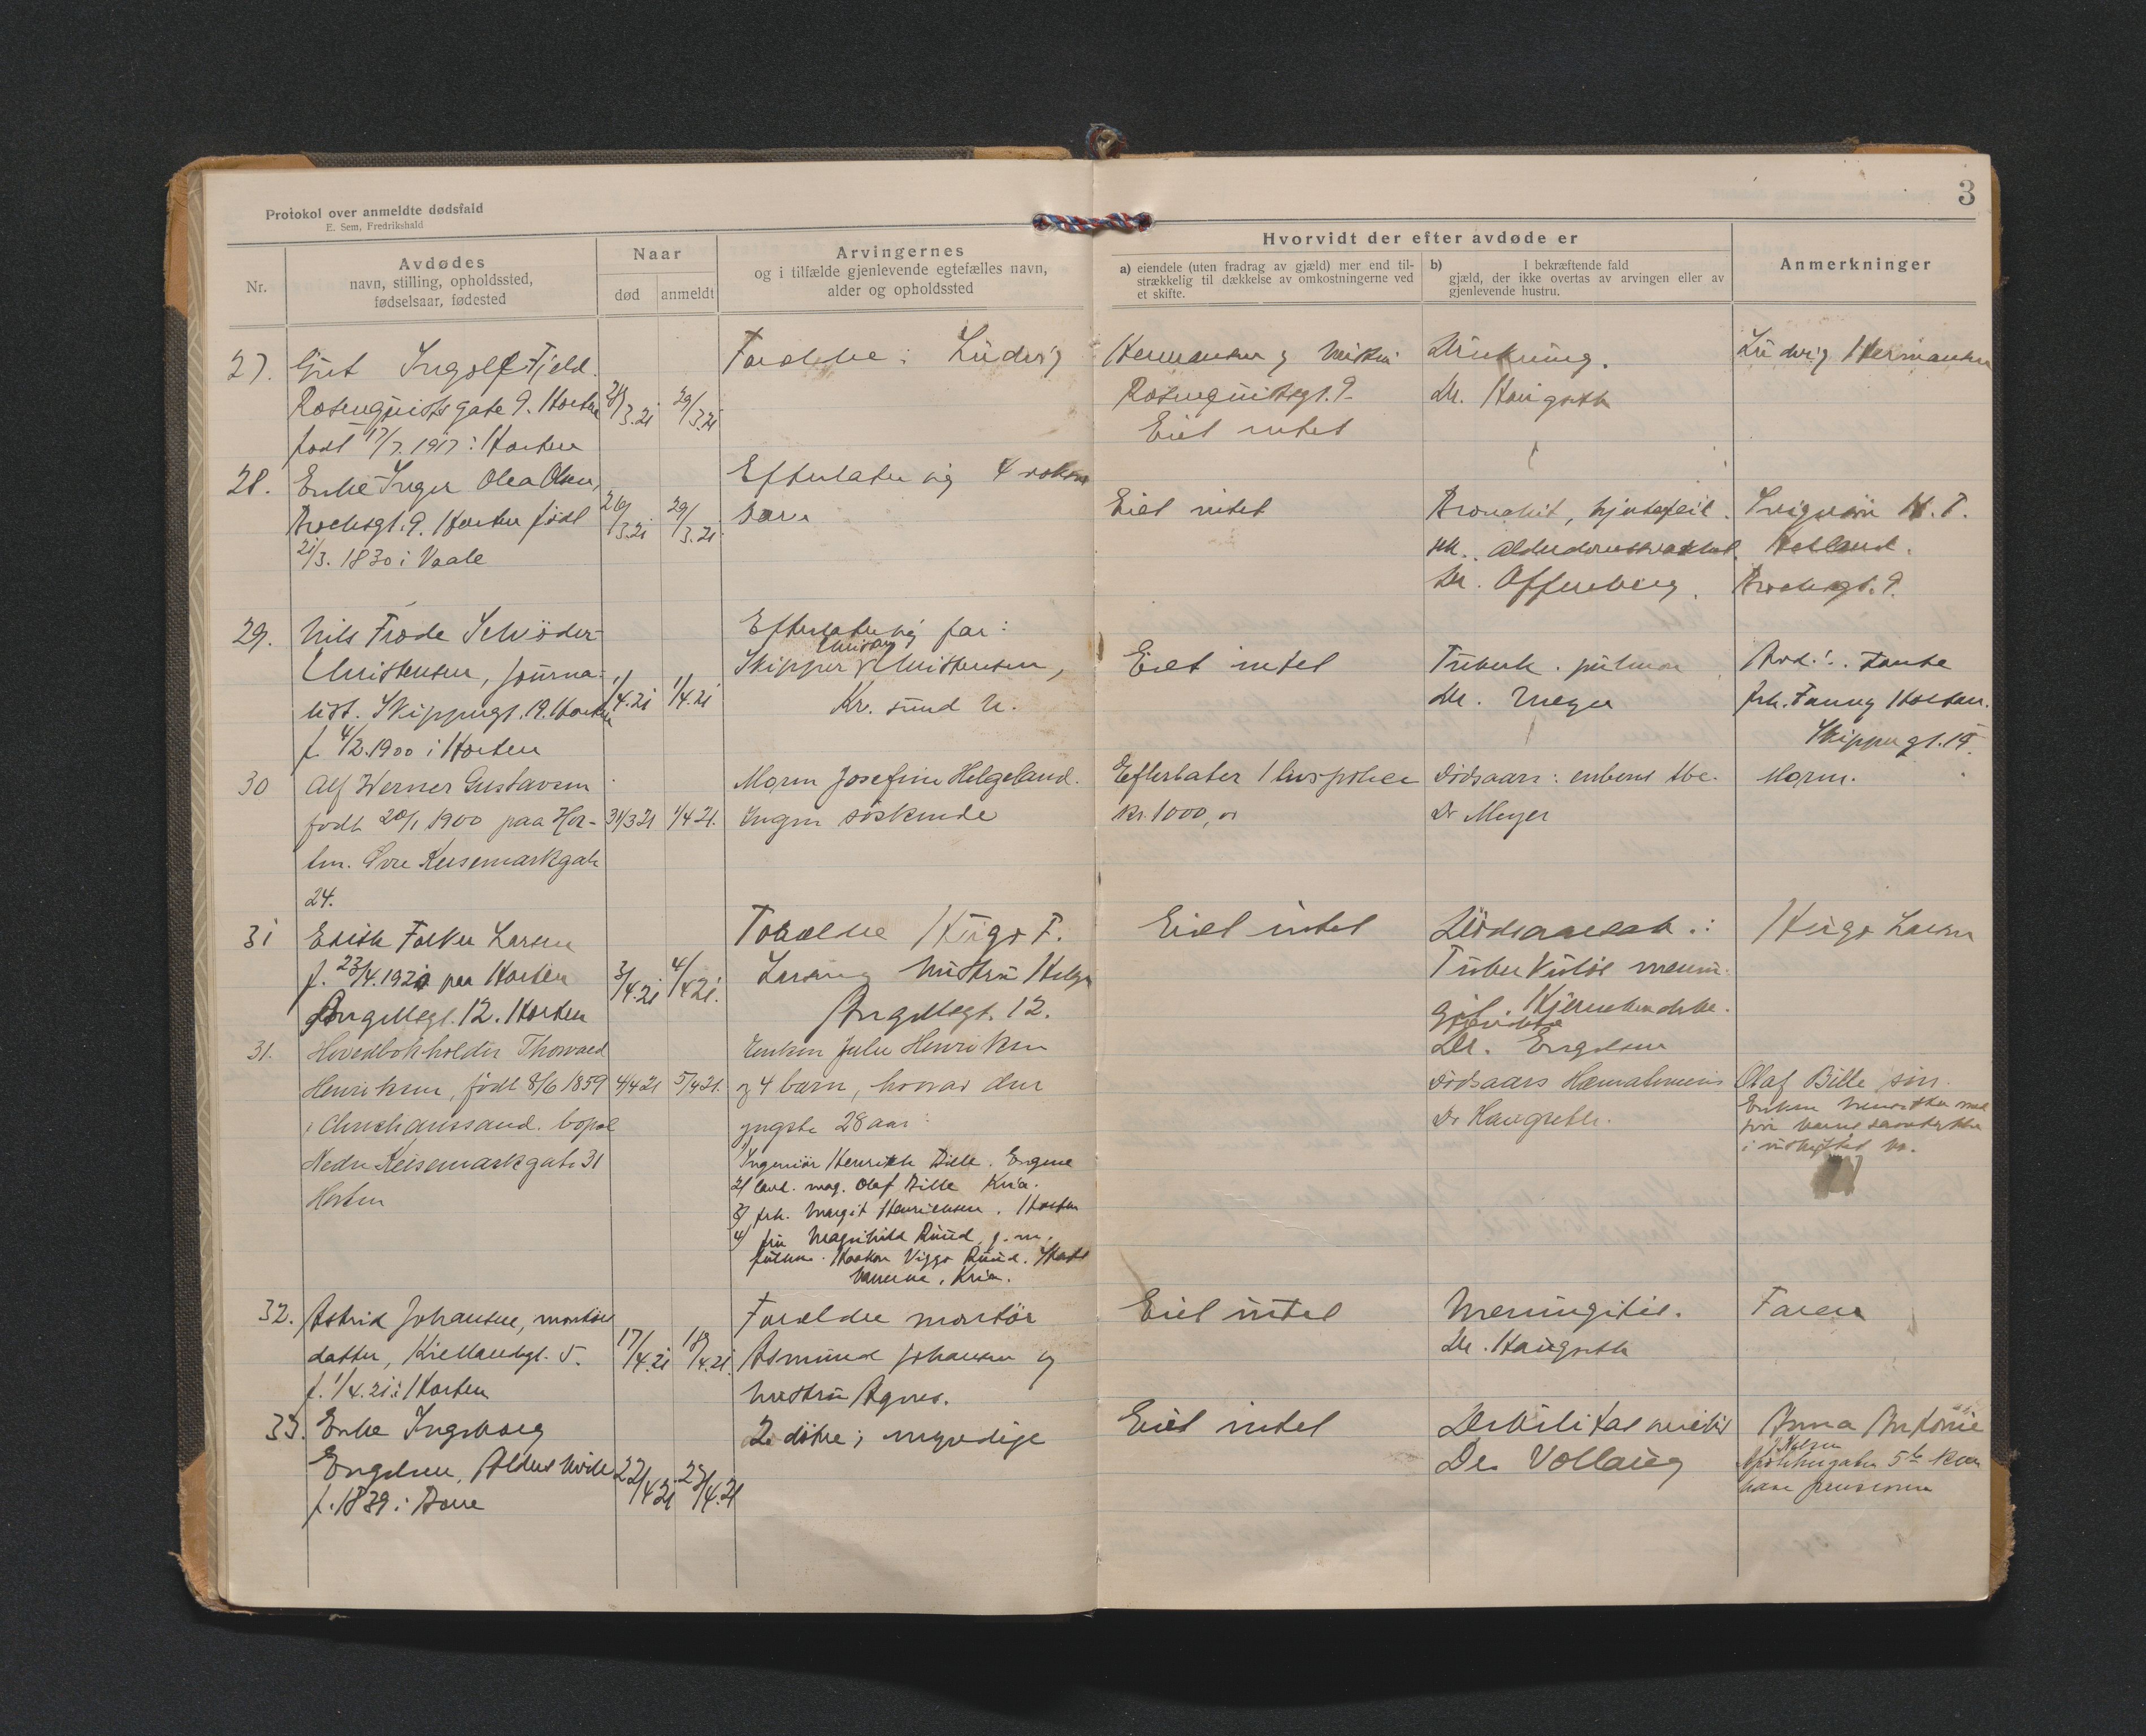 3
Protokol over anmeldte dødsfald
E. Sem, Fredrikshald
Nr.
Avdødes
navn, stilling, opholdssted,
fødselsaar, fødested
Naar
død
anmeldt
Arvingernes
og i tilfælde gjenlevende egtefælles navn,
alder og opholdssted
Hvorvidt der efter avdøde er
a) eiendele (uten fradrag av gjæld) mer end til-
strækkelig til dækkelse av omkostningerne ved
et skifte.
b) I bekræftende fald
gjæld, der ikke overtas av arvingen eller av
gjenlevende hustru.
Anmerkninger
27. Gut Ingolf Fjeld
Rosenquistsgate 9. Horten
født 17/7. 1917 i Horten
28/3.21
29/3.21
Forældre: Ludvig
Hermansen og hustru
Rosenquistsgt. 9
Eiet intet
Drukning.
Dr. Haugseth
Ludvig Hermansen
28. Enke Inger Olea Olsen,
Brochsgt. 9. Horten født
21/3. 1830 i Vaale
26/3.21
29/3.21
Efterlater sig 4 voksne
barn
Eiet intet
Bronchit, hjertefeil.
Alderdomssvakhet
Dr. Offenberg.
H. T.
Holland.
Brochsgt. 9.
29. Nils Frode Schrøder-
Christensen, journa-
list. Skippergt. 19. Horten
f. 4/2. 1900 i Horten
1/4.21
1/4.21
Efterlater sig far:
Skipper Christensen,
Kr. sund N.
Eiet intet
Tuberk. pulmon
Dr. Meyer
Tante
frk. Fanny Holtan.
Skippergt. 19.
30 Alf Werner Gustavsen
født 20/1 1900 paa Hor-
ten. Øvre Keisemarkgate
24.
31/3 21
1/4 21.
Morm Josefine Helgeland.
Ingen søskende
Efterlater 1 livspolice
Kr. 1000,00
Dødsaars: tbc.
Dr Meyer
Morm.
31 Edith Larsen
f. 23/4. 1920 paa Horten
12. Horten
3/4.21
4/4.21.
Forældre Hugo F.
Larsen og hustru Helga
12.
Eiet intet
Dødsaarsak:
Tuberkuløs menin-
git. Hjernehindebe-
Dr. Engelsen
Hugo Larsen
31. Hovedbokholder Thorvald
Henriksen, født 8/6 1859
i Christianssand. bopæl
Nedre Keisemarkgate 31
Horten
4/4 21
5/4 21.
Enken Julie Henriksen
og 4 barn, hvorav den
yngste 28 aar:
1) Ingeniør Henrik Bille.
2) cand. mag. Olaf Bille Kria.
3) frk. Margit Henriksen. Horten
4) fru Magnhild Ruud, g. m.
Haakon Viggo Ruud.
Kria.
Dødsaars
Dr Haugseth.
Olaf Bille søn.
Enken
sine barns samtykke
i uskiftet bo.
32. Astrid Johansen, montør
datter, Kiellandsgt. 5.
f. 1/4. 21 i Horten
17/4.21
18/4.21.
Forældre montør
Asmund Johansen og
hustru Agnes.
Eiet intet
Meningitis.
Dr. Haugseth
Faren
33. Enke Ingeborg
Engelsen, Aldershvile
f. 1839 i Borre
22/4 21
23/4.21
2 døtre; myndige
Eiet intet
Debilitas
Dr. Vollaug
Anna Antonie